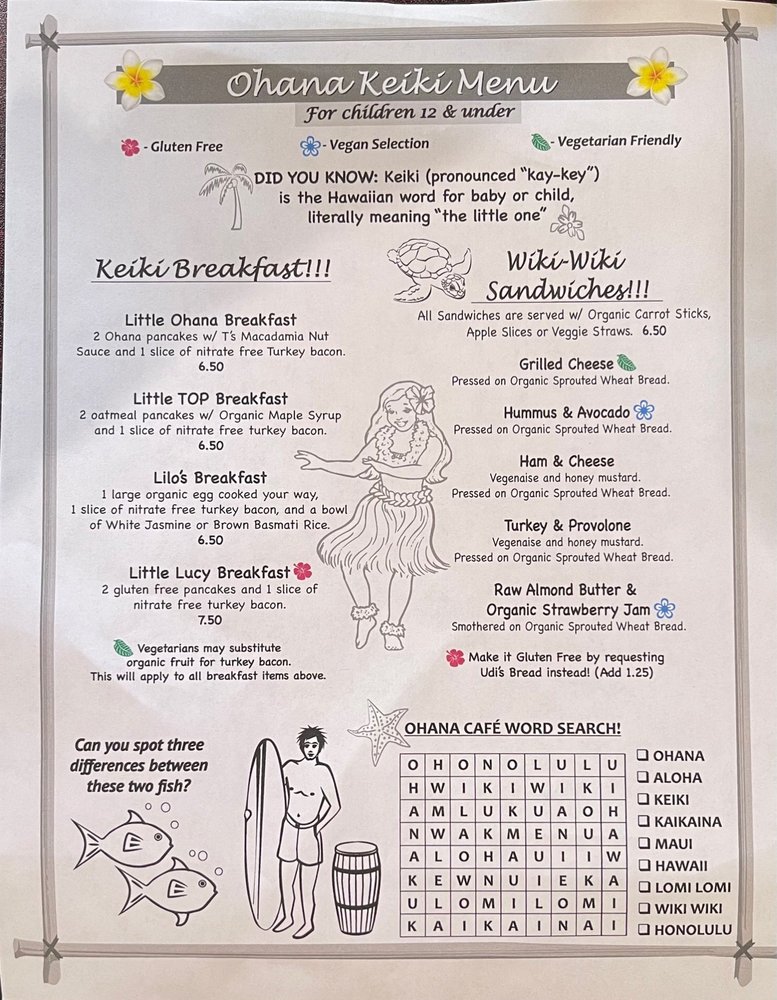 Ohana Keiki Menu
For children 12 & under
- Gluten Free
- Vegan Selection
- Vegetarian Friendly
DID YOU KNOW: Keiki (pronounced "kay-key")
is the Hawaiian word for baby or child,
literally meaning "the little one"
Keiki Breakfast!!!
Little Ohana Breakfast
2 Ohana pancakes w/ T's Macadamia Nut
Sauce and 1 slice of nitrate free Turkey bacon.
6.50
Little TOP Breakfast
2 oatmeal pancakes w/ Organic Maple Syrup
and 1 slice of nitrate free turkey bacon.
6.50
Lilo's Breakfast
1 large organic egg cooked your way,
1 slice of nitrate free turkey bacon, and a bowl
of White Jasmine or Brown Basmati Rice.
6.50
Little Lucy Breakfast
2 gluten free pancakes and 1 slice of
nitrate free turkey bacon.
7.50
Vegetarians may substitute
organic fruit for turkey bacon.
This will apply to all breakfast items above.
Wiki-Wiki
Sandwiches!!!
All Sandwiches are served w/ Organic Carrot Sticks,
Apple Slices or Veggie Straws. 6.50
Grilled Cheese
Pressed on Organic Sprouted Wheat Bread.
Hummus & Avocado
Pressed on Organic Sprouted Wheat Bread.
Ham & Cheese
Vegenaise and honey mustard.
Pressed on Organic Sprouted Wheat Bread.
Turkey & Provolone
Vegenaise and honey mustard.
Pressed on Organic Sprouted Wheat Bread.
Raw Almond Butter &
Organic Strawberry Jam
Smothered on Organic Sprouted Wheat Bread.
Make it Gluten Free by requesting
Udi's Bread instead! (Add 1.25)
Can you spot three
differences between
these two fish?
OHANA CAFÉ WORD SEARCH!
O H O N O L U L U
H W I K I W I K I
A M L U K U A O H
N W A K M E N U A
A L O H A U I I W
K E W N U I E K A
U L O M I L O M I
K A I K A I N A I
OHANA
ALOHA
KEIKI
KAIKAINA
MAUI
HAWAII
LOMI LOMI
WIKI WIKI
HONOLULU